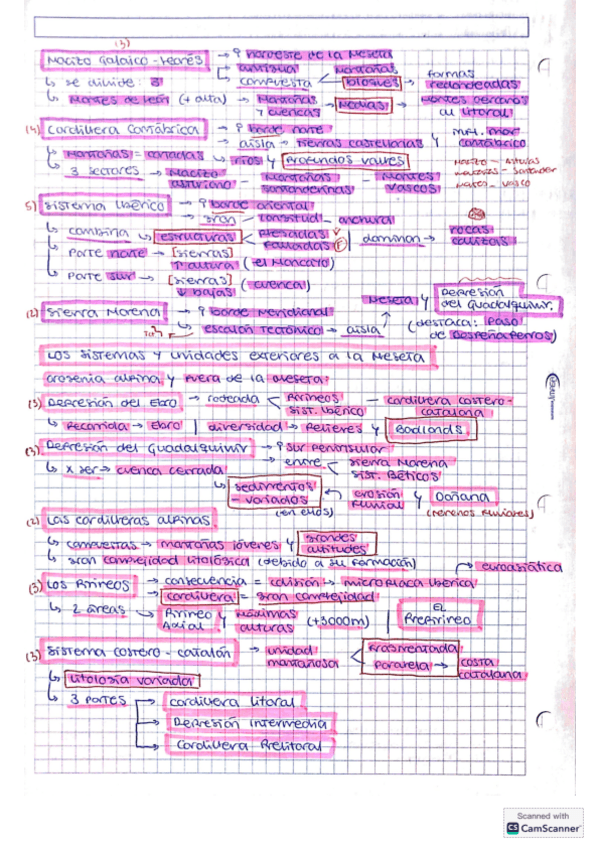 (3)
Macizo Galaico-Leonés → noroeste de la Meseta
↳ se divide: → antigua
→ compuesta < Montañas
bloques → formas redondeadas
↳ Montes de León (+ alta) → Montañas y cuencas → Medias → Montes cercanos al litoral
(4) Cordillera Cantábrica → borde norte
→ aísla → tierras castellanas y mar cantábrico
↳ Montañas = cortadas → ríos y profundos valles
↳ 3 sectores → Macizo asturiano — Montañas santanderinas — Montes vascos
Macizo - Asturias
Montañas - Santander
Montes - Vasco
5) Sistema Ibérico → borde oriental
→ gran < longitud - anchura
↳ combina → estructuras < plegadas
falladas | dominan → rocas calizas
↳ Parte norte → [sierras] ↑ altura (el Moncayo)
↳ Parte sur → [sierras] ↓ bajas (cuenca)
(2) Sierra Morena → borde meridional
↳ escalón tectónico → aísla Meseta y Depresión del Guadalquivir.
(destaca: Paso de Despeñaperros)
Los sistemas y unidades exteriores a la Meseta
orogenia alpina y fuera de la Meseta:
(3) Depresión del Ebro → rodeada < Pirineos — cordillera costero-catalana
Sist. Ibérico
↳ Recorrida → Ebro | diversidad → relieves y Badlands.
(3) Depresión del Guadalquivir → sur peninsular
→ entre < Sierra Morena
Sist. Béticos
↳ x ser → cuenca cerrada
↳ sedimentos - variados ← erosión fluvial y Doñana
(en ellos) (terrenos fluviales)
(2) Las cordilleras alpinas
↳ compuestas → montañas jóvenes y grandes altitudes
↳ gran complejidad litológica (debido a su formación)
(3) Los Pirineos → consecuencia = colisión → microplaca ibérica → euroasiática
→ cordillera = gran complejidad
↳ 2 áreas → Pirineo Axial y máximas alturas (+3000m) | El Prepirineo
(3) Sistema costero-catalán → unidad montañosa < fragmentada
paralela → costa catalana
↳ litología variada
↳ 3 partes → cordillera litoral
→ Depresión Intermedia
→ Cordillera Prelitoral
Scanned with
CS CamScanner